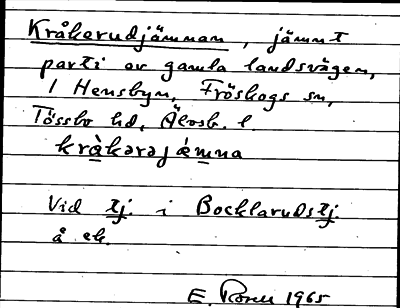 Kråkerudjämnan, jämnt
parti av gamla landsvägen,
i Hensbyn, Fröskogs sn,
Tössbo hd, Älvsb. l.
kràkərəjǽmna
Vid tj. i Bocklarudstj.
å ek.
E. 1965